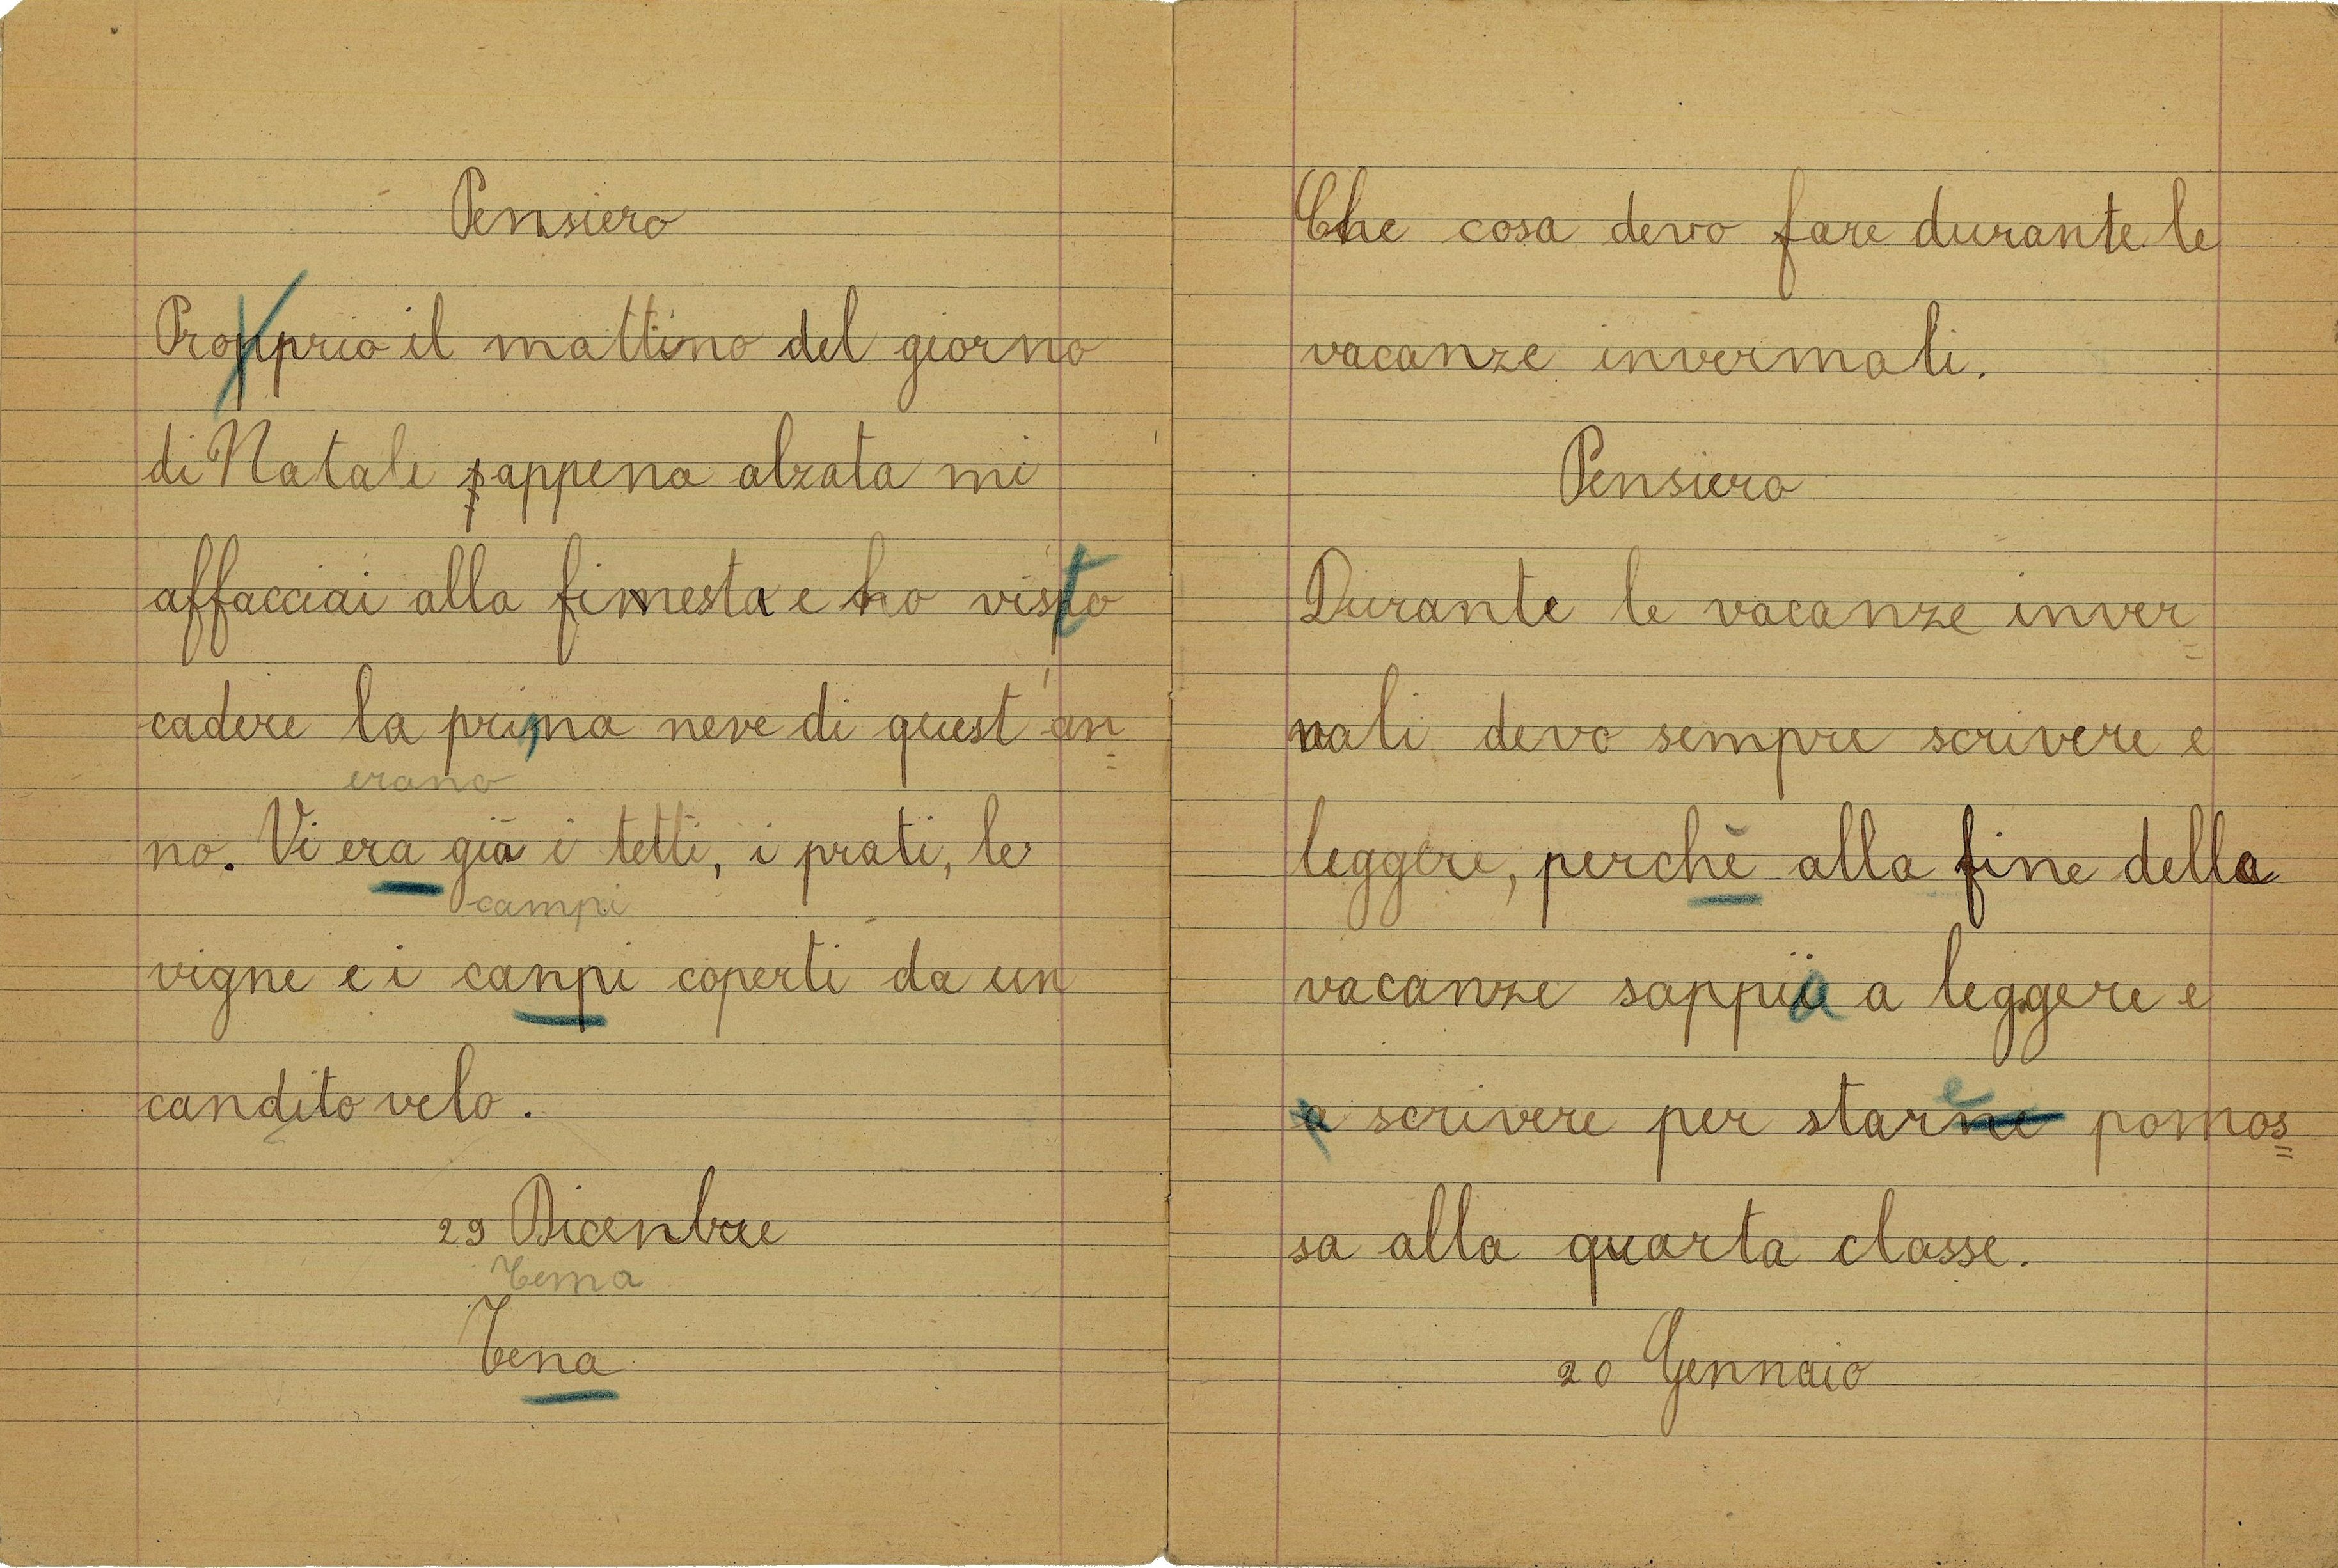 Pensiero
Propprio il mattino del giorno
di Natale appena alzata mi
affacciai alla finnesta e ho visto
cadere la prima neve di quest'an=
erano
no. Vi era già i tetti, i prati, le
campi
vigne e i canpi coperti da un
candito velo.
29 Dicenbre
Tema
Tena
Che cosa devo fare durante le
vacanze invernali.
Pensiero
Durante le vacanze inver=
nali devo sempre scrivere e
leggere, perchè alla fine della
vacanze sappia a leggere e
a scrivere per starne pomos=
sa alla quarta classe.
20 Gennaio